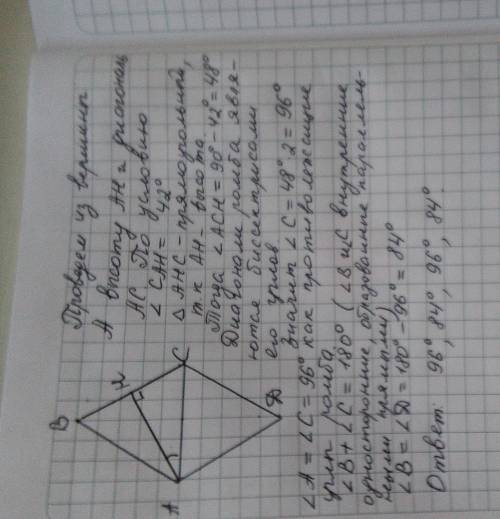 Проведем из вершины
А высоту АН и диагональ
АС. По условию
∠ САН = 42°
△ АНС - прямоугольный,
т.к АН - высота.
Тогда ∠АСН = 90° - 42° = 48°
Диагонали ромба явля-
ются биссектрисами
его углов
Значит ∠С = 48°·2 = 96°
∠А = ∠С = 96° как противолежащие
углы ромба.
∠В + ∠С = 180° (∠В и ∠С внутренние
односторонние, образованные параллель-
ными прямыми)
∠В = ∠D = 180° - 96° = 84°
Ответ: 96°, 84°, 96°, 84°
В
Н
С
А
D